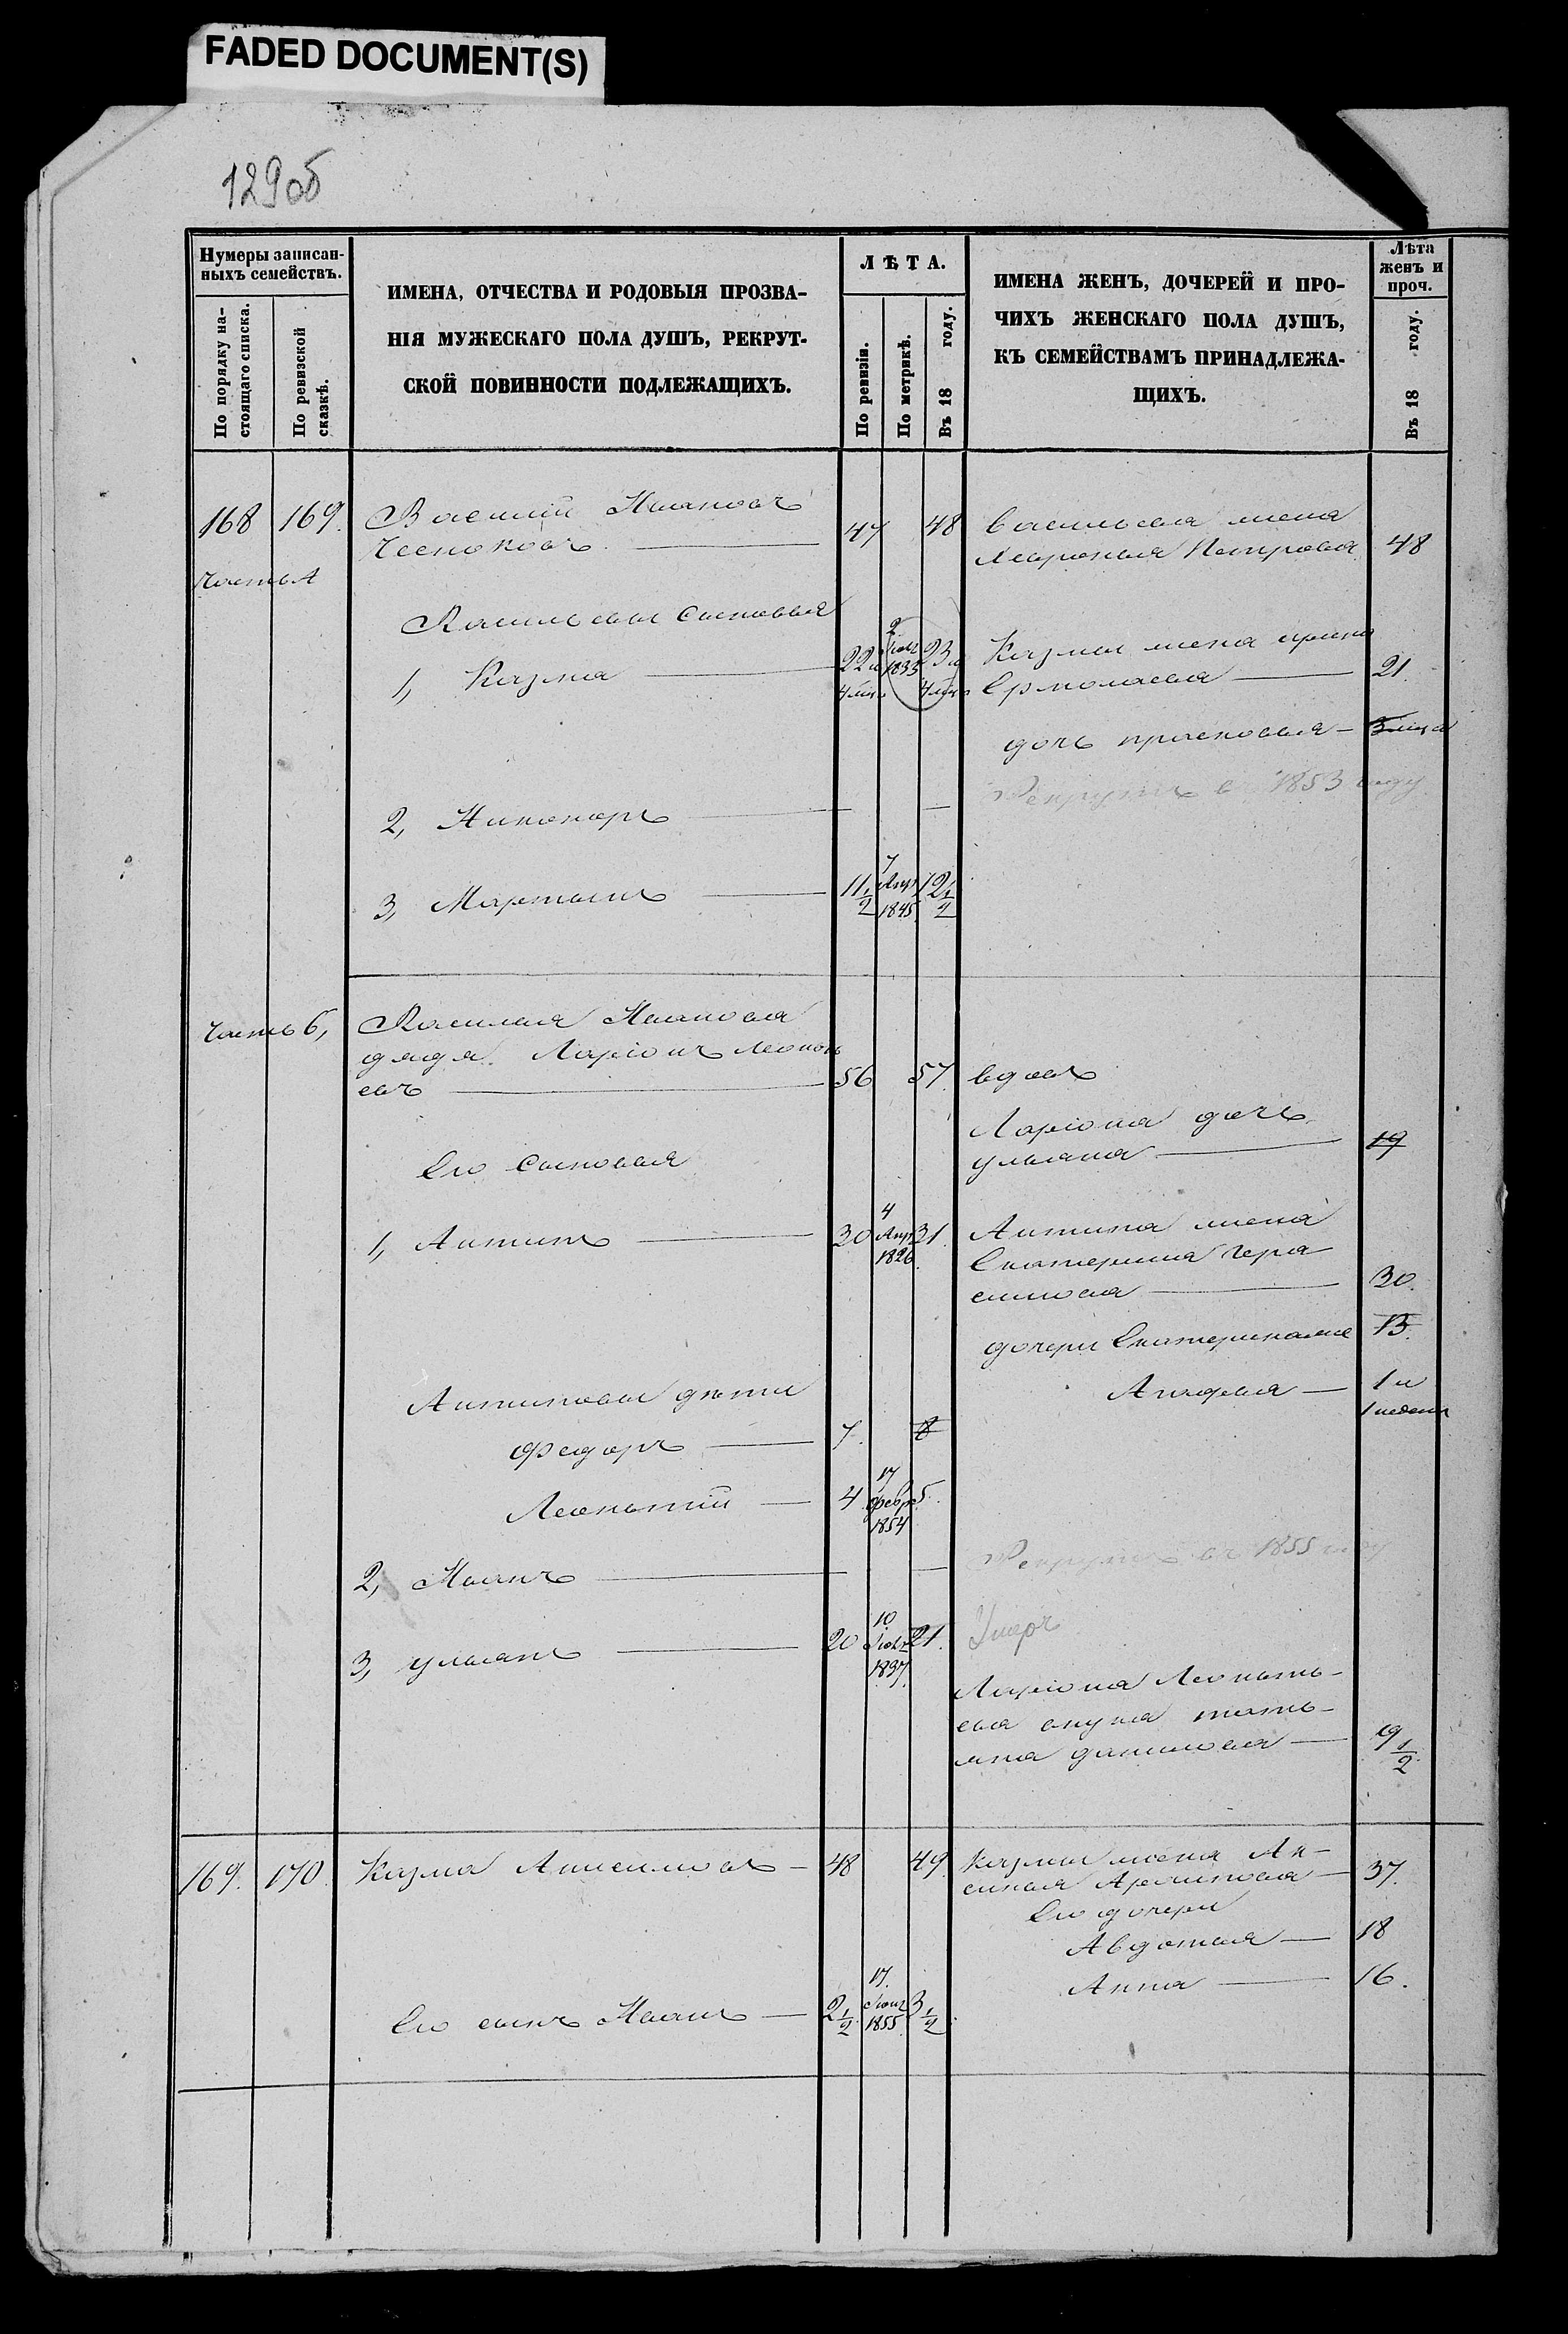 FADED DOCUMENT(S)
129об
Нумеры записан-
ныхъ семействъ.
По порядку на-
стоящаго списка.
По ревизской
сказкѣ.
ИМЕНА, ОТЧЕСТВА И РОДОВЫЯ ПРОЗВА-
НІЯ МУЖЕСКАГО ПОЛА ДУШЪ, РЕКРУТ-
СКОЙ ПОВИННОСТИ ПОДЛЕЖАЩИХЪ.
ЛѢТА.
По ревизіи.
По метрикѣ.
Въ 18 году.
ИМЕНА ЖЕНЪ, ДОЧЕРЕЙ И ПРО-
ЧИХЪ ЖЕНСКАГО ПОЛА ДУШЪ,
КЪ СЕМЕЙСТВАМЪ ПРИНАДЛЕЖА-
ЩИХЪ.
Лѣта
женъ и
проч.
Въ 18 году.
168 169. Василий Ивановъ
Чесноковъ 47 48
Васильева жена
Мавронья Петрова 48
Часть А
Васильевы Сыновья
1, Кузма 22 и 4 мѣс 2 1833 23 и 4 мѣс
Кузмы жена Ирина
Ермолаева 21.
дочь прасковья 3 мѣся
2, Никаноръ
Рекрутъ въ 1853 году
3, Мартынъ 11 1/2 7 Апр 1845 12 1/2
Часть Б, Василья Иванова
дядя Ларіонъ Леонть
евъ 56 57. вдовъ
Ларіона дочь
Ульяна 19
Его Сыновья
1, Антипъ 30 4 Апр 1826 31.
Антипа жена
Екатерина Гера
симова 30.
дочери Екатерина 13.
Антиповы дѣти
1 и
1 недели
Федоръ 7. 8
Леонтий 4 17 Февр 1854 5.
2, Иванъ
Рекрутъ въ 1855 году
3, Ульянъ 20 10 1837. 21. Умеръ
Ларіона Леонть-
ева внука Тать-
яна Данилова 9 1/2
169. 170. Кузма Анисимовъ 48 49.
Кузмы жена Ак-
синья Архипова 37.
Его дочери
Авдотья 18
Анна 16.
Его сынъ Иванъ 2 1/2 17. 1855 3 1/2